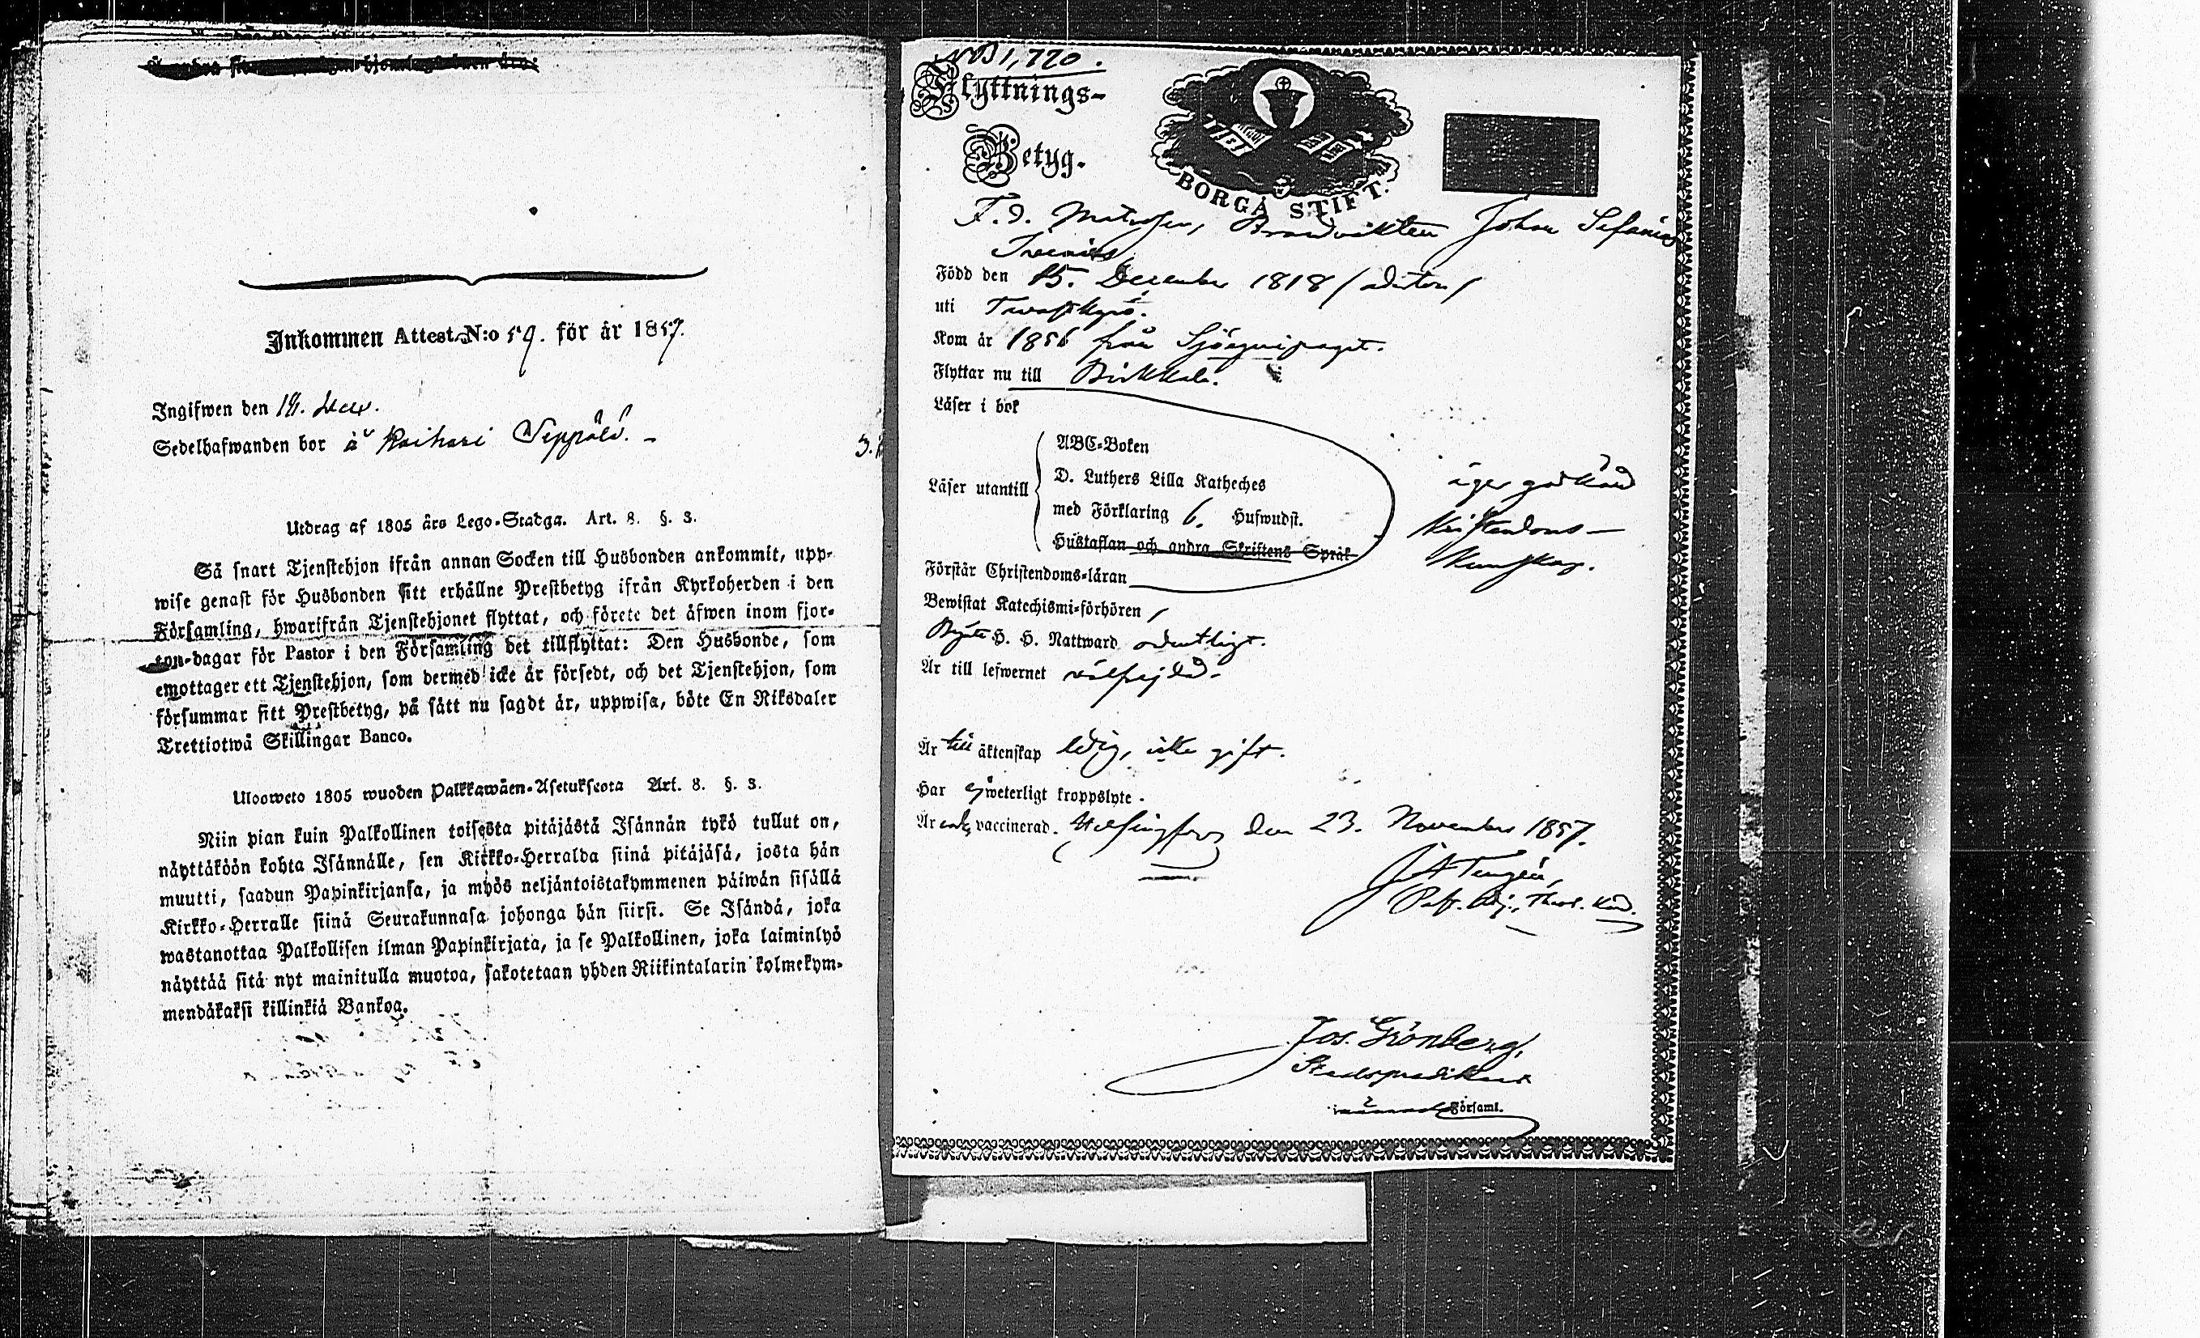 Inkommen Attest N:o 59. för år 1857.
Ingifwen den 19. Dec.
Sedelhafwanden bor å Kaihari Seppälä. -
Utdrag af 1805 års Lego-Stadga. Art. 8. §. 3.
Så snart Tjenstehjon ifrån annan Socken till Husbonden ankommit, upp-
wise genast för Husbonden sitt erhållne Prestbetyg ifrån Kyrkoherden i den
Församling, hwarifrån Tjenstehjonet flyttat, och förete det äfwen inom fjor-
ton-dagar för Pastor i den Församling det tillflyttat: Den Husbonde, som
emottager ett Tjenstehjon, som dermed icke är försedt, och det Tjenstehjon, som
försummar sitt Prestbetyg, på sätt nu sagdt är, uppwisa, böte En Riksdaler
Trettiotwå Skillingar Banco.
Uloosweto 1805 wuoden Palkkawäen-Asetuksesta Art. 8. §. 3.
Niin pian kuin Palkollinen toisesta pitäjästä Isännän tykö tullut on,
näyttäköön kohta Isännälle, sen Kirkko-Herralda siinä pitäjäsä, josta hän
muutti, saadun Papinkirjansa, ja myös neljäntoistakymmenen päiwän sisällä
Kirkko-Herralle siinä Seurakunnasa johonga hän siirsi. Se Isändä, joka
wastanottaa Palkollisen ilman Papinkirjata, ja se Palkollinen, joka laiminlyö
näyttää sitä nyt mainitulla muotoa, sakotetaan yhden Riikintalarin kolmekym-
mendäkaksi killinkiä Bankoa.
N 1,770.
Flyttnings-
Betyg.
BORGÅ STIFT.
F. d. Matrosen, Brandvakten Johan
Född den 15. December 1818 /aderton/
uti Tavastkyrö.
Kom år 1856 från Sjöequipaget.
Flyttar nu till Birkkala.
Läser i bok
Läser utantill
ABC-Boken
D. Luthers Lilla Katheches
med Förklaring 6. Hufwudst.
Hustaflan och andra Skriftens Språk
Förstår Christendoms-läran
äger godkänd
Kristendoms-
kunskap.
Bewistat Katechismi-förhören /
H. H. Nattward ordentligt.
Är till lefwernet välfrejdad.
Är till äktenskap ledig, icke gift.
Har ej weterligt kroppslyte.
Är vaccinerad. Helsingfors den 23. November 1857.
Past. Adj., Theol. Kand.
Jos. Grönberg,
Stadspredikant
Församl.